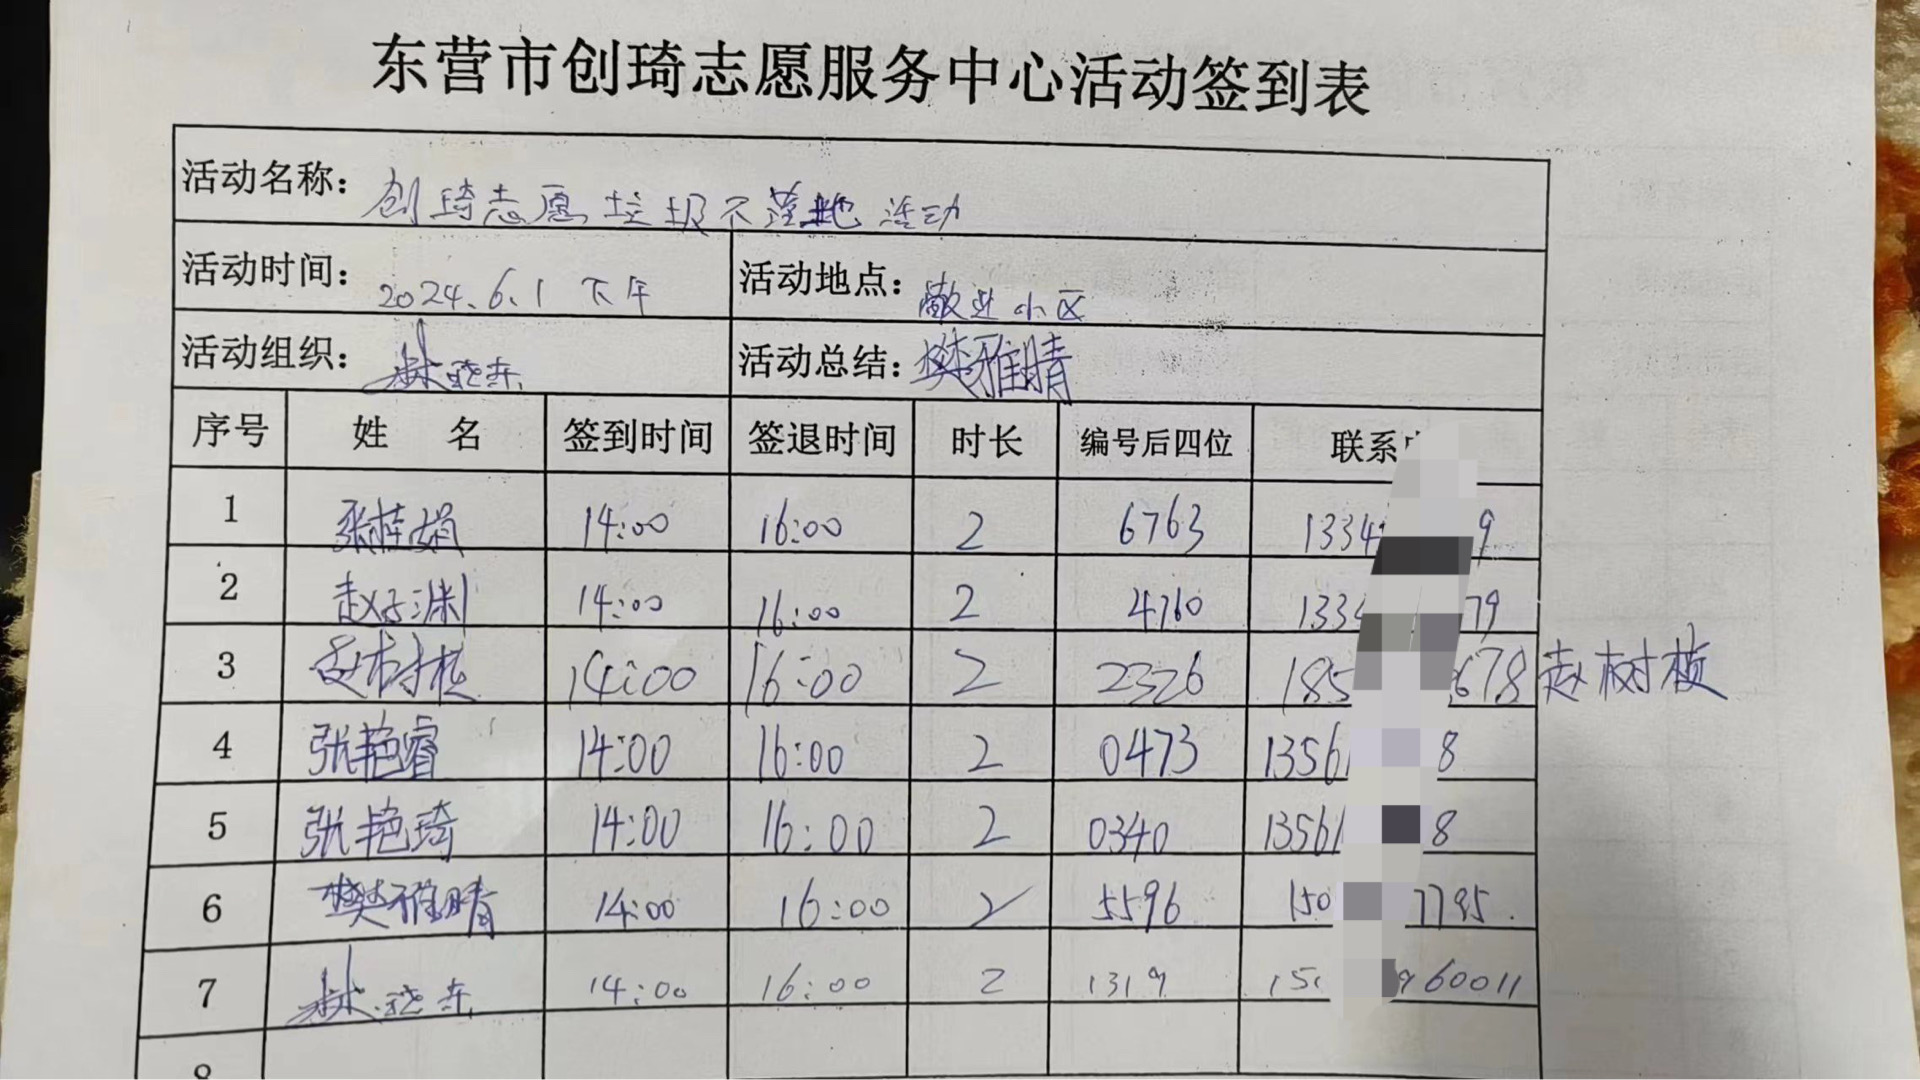 东营市创琦志愿服务中心活动签到表
活动名称：创琦志愿垃圾不落地活动
活动时间：2024.6.1 下午 活动地点： 小区
活动组织： 晓东 活动总结：樊雅晴
序号 姓 名 签到时间 签退时间 时长 编号后四位 联系
1 张桂娟 14:00 16:00 2 6763 1334 9
2 赵子渊 14:00 16:00 2 4760 133 79
3 赵树桢 14:00 16:00 2 2326 185 678 赵树桢
4 张艳睿 14:00 16:00 2 0473 1356 8
5 张艳琦 14:00 16:00 2 0340 1356 8
6 樊雅晴 14:00 16:00 2 5596 150 7795.
7 晓东 14:00 16:00 2 1319 15 960011
8